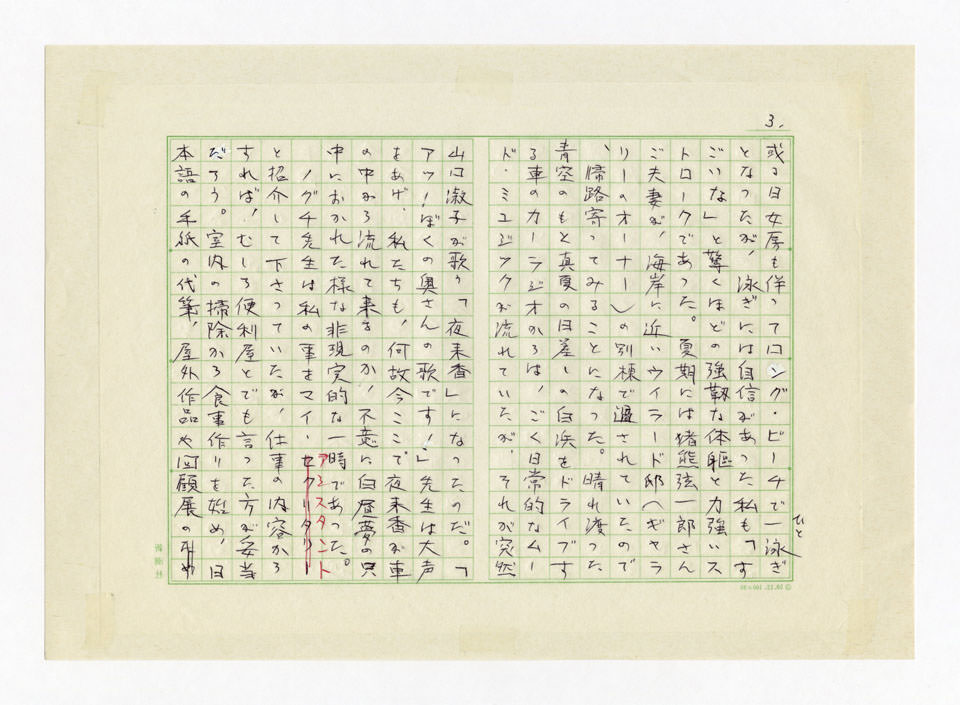 3.
或る日女房も伴ってロング・ビーチで一泳ぎ
ひと
となったが、泳ぎには自信があった私も「す
ごいな」と驚くほどの強靱な体軀と力強いス
トロークであった。夏期には猪熊弦一郎さん
ご夫妻が、海岸に近いウイラード邸へギャラ
リーのオーナー)の別棟で過されていたので
、帰路寄ってみることになった。晴れ渡った
青空のもと真夏の日差しの白浜をドライブす
る車のカーラジオからは、ごく日常的なムー
ド・ミュジックが流れていたが、それが突然
山口淑子が歌う「夜来香」になったのだ。「
アッ!ぼくの奥さんの歌です!」先生は大声
をあげ、私たちも、何故今ここで夜来香が車
の中から流れて来るのか、不意に白昼夢の只
中におかれた様な非現実的な一時であった。
ノグチ先生は私の事をマイ・セクリタリー
アシスタント
と招介して下さっていたが、仕事の内容から
すれば、むしろ便利屋とでも言った方が妥当
だろう。室内の掃除から食事作りを始め、日
本語の手紙の代筆、屋外作品や回顧展の